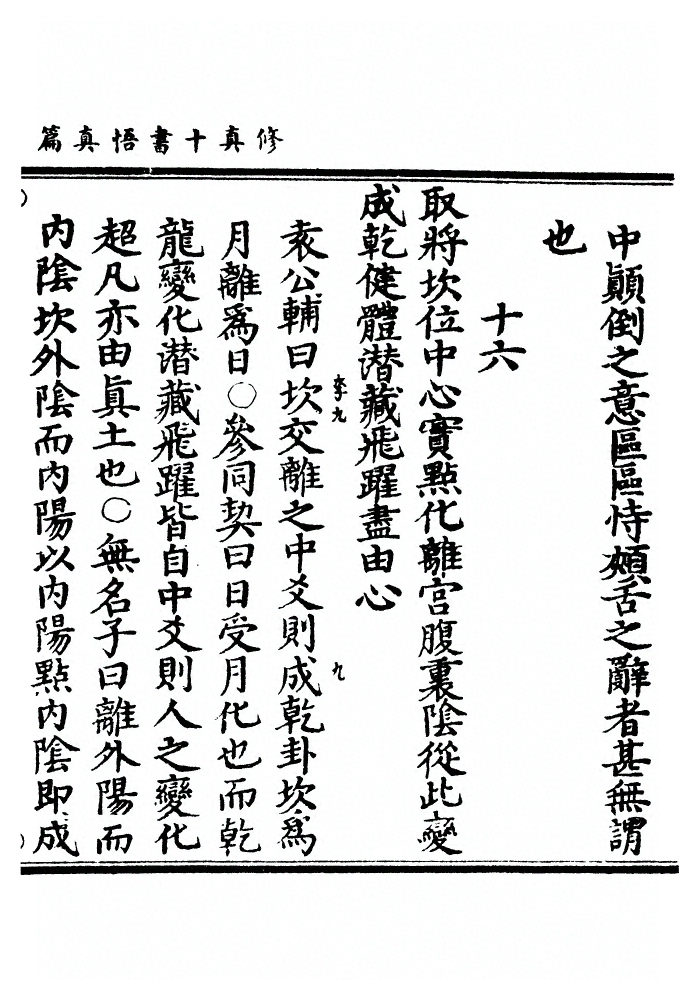 修真十書悟真篇
中顚倒之意區區恃頰舌之辭者甚無謂
也
十六
取將坎位中心實點化離宮腹裏陰從此變
成乾健體潜藏飛躍盡由心
袁公輔曰坎交離之中爻則成乾卦坎爲
月離爲日〇參同契曰日受月化也而乾
龍變化潜藏飛躍皆自中爻則人之變化
超凡亦由眞土也〇無名子曰離外陽而
内陰坎外陰而内陽以内陽點内陰即成